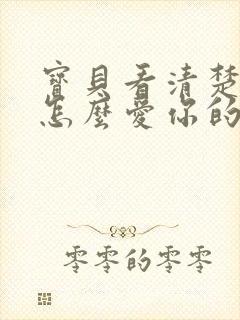 寶貝看清楚
怎麼愛你的
零零的零零